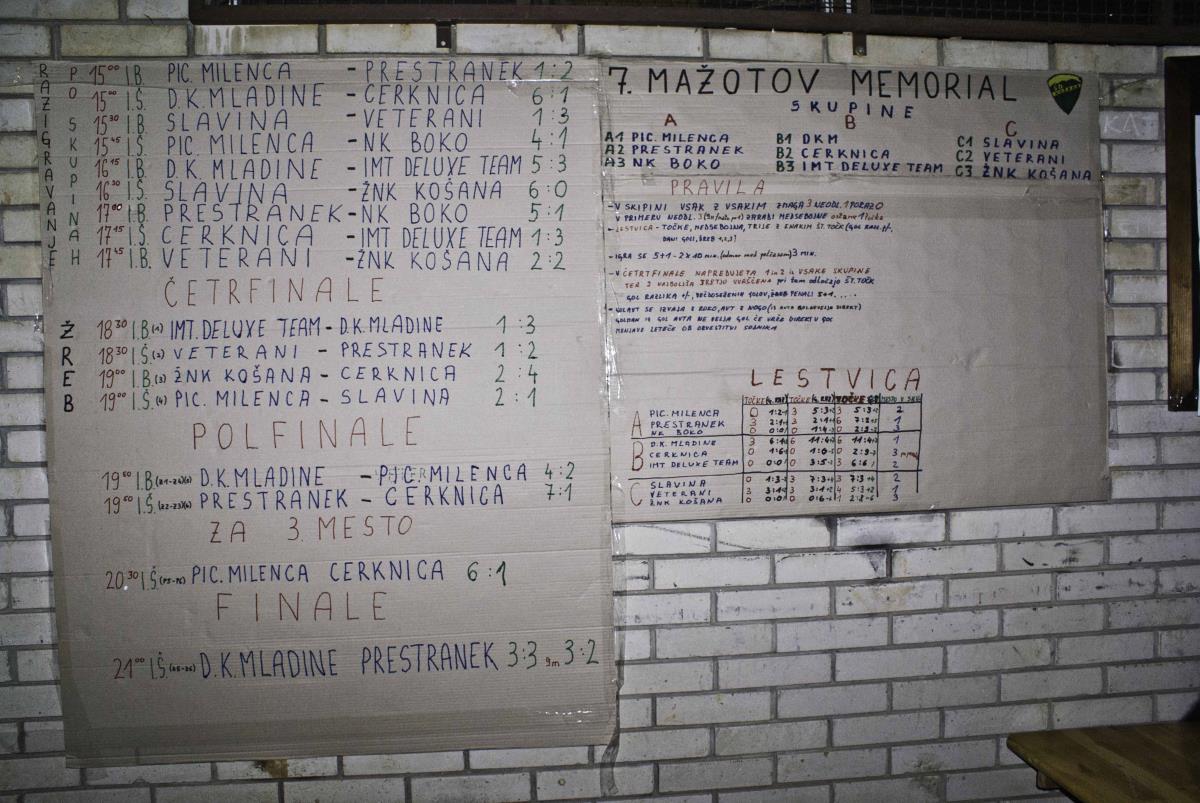 RAZIGRAVANJE
PO SKUPINAH
15⁰⁰ I.B. PIC. MILENCA - PRESTRANEK 1:2
15⁰⁰ I.Š. D.K. MLADINE - CERKNICA 6:1
15³⁰ I.B. SLAVINA - VETERANI 1:3
15⁴⁵ I.Š. PIC. MILENCA - NK BOKO 4:1
16¹⁵ I.B. D.K. MLADINE - IMT DELUXE TEAM 5:3
16³⁰ I.Š. SLAVINA - ŽNK KOŠANA 6:0
17⁰⁰ I.B. PRESTRANEK - NK BOKO 5:1
17¹⁵ I.Š. CERKNICA - IMT DELUXE TEAM 1:3
17⁴⁵ I.B. VETERANI - ŽNK KOŠANA 2:2
ČETRFINALE
ŽREB
18³⁰ I.B. (1) IMT. DELUXE TEAM - D.K. MLADINE 1:3
18³⁰ I.Š. (2) VETERANI - PRESTRANEK 1:2
19⁰⁰ I.B. (3) ŽNK KOŠANA - CERKNICA 2:4
19⁰⁰ I.Š. (4) PIC. MILENCA - SLAVINA 2:1
POLFINALE
I.B D.K. MLADINE - PIC. MILENCA 4:2
I.Š. PRESTRANEK - CERKNICA 7:1
ZA 3. MESTO
20³⁰ I.Š. PIC. MILENCA CERKNICA 6:1
FINALE
21⁰⁰ I.Š. D.K. MLADINE PRESTRANEK 3:3 9m 3:2
7. MAŽOTOV MEMORIAL
SKUPINE
A B C
A1 PIC. MILENCA B1 DKM C1 SLAVINA
A2 PRESTRANEK B2 CERKNICA C2 VETERANI
A3 NK BOKO B3 IMT DELUXE TEAM C3 ŽNK KOŠANA
PRAVILA
- V SKIPINI VSAK Z VSAKIM ZMAGA 3 NEODL. 1 PORAZ 0
V PRIMERU NEODL. ZARADI MEDSEBOJNE
- LESTVICA - TOČKE, MEDSEBOJNA, TRIJE Z ENAKIM ŠT. TOČK (GOL RAZL. +/-,
DANI GOLI, ŽREB 1,2,3!
- IGRA SE 5+1 - 2x10 min. (odmor med polčasom) 3 min.
- V ČETRTFINALE NAPREDUJETA 1 in 2 iz VSAKE SKUPINE
TER 2 NAJBOLJŠA TRETJO UVRŠČENA pri tem odločajo ŠT. TOČK
GOL RAZLIKA +/-, 5+1.....
MENJAVE LETEČE OB OBVESTITVI SODNIKA
LESTVICA
A
PIC. MILENCA 0 1:2 3 5:3 3 5:3 2
PRESTRANEK 3 2:1 3 2:1 6 7:2 1
NK BOKO 0 0:0 0 1:4 0 3
B
D.K. MLADINE 3 6:1 6 11:4 6 11:4 1
CERKNICA 0 1:6 0 3
IMT DELUXE TEAM 0 0:0 0 3:5 3 6:6 2
C
SLAVINA 0 1:3 3 7:3 3 7:3 2
VETERANI 3 3:1 3 3:1 4 5:3 1
ŽNK KOŠANA 0 0:0 0 0:6 1 2:8 3